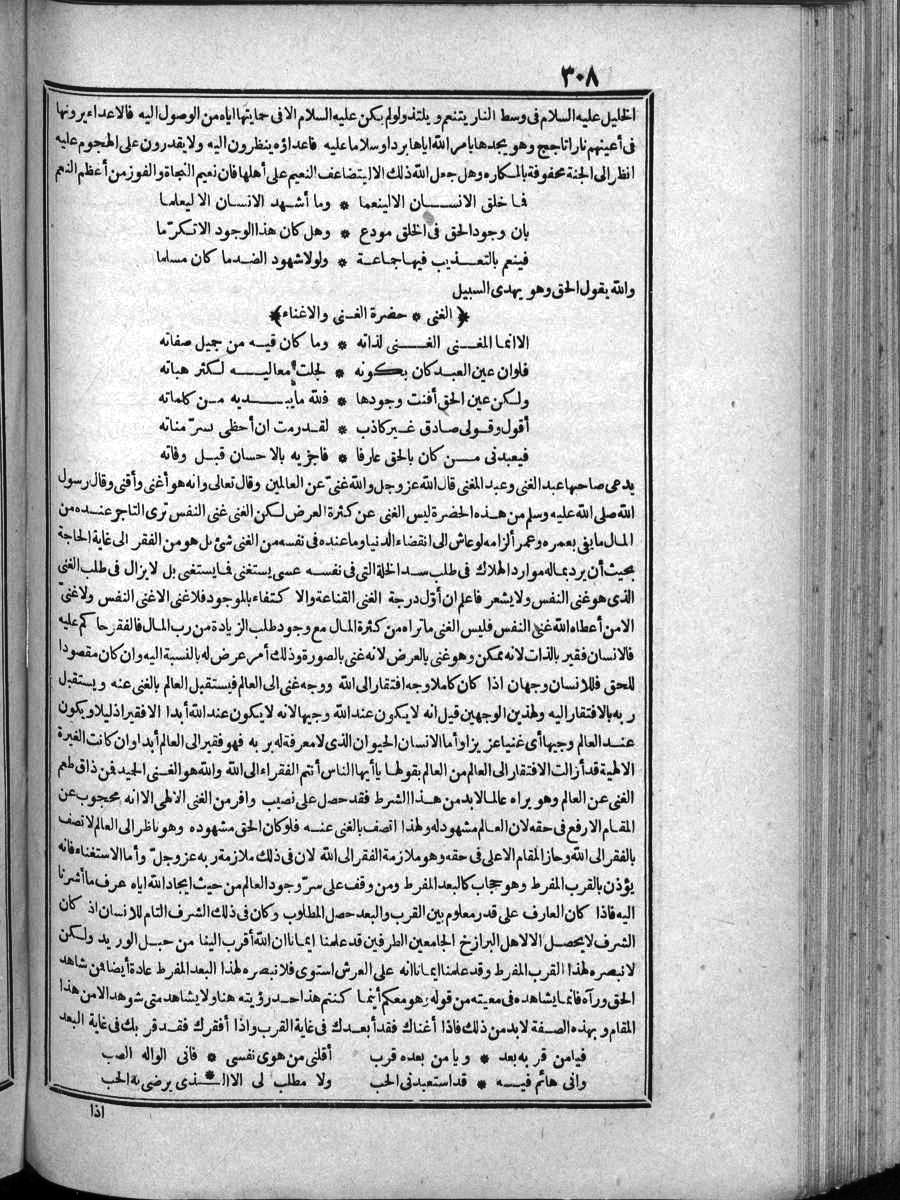 ٣٠٨
الخليل عليه السلام فى وسط النار يتنعم ويلتذ ولو لم يكن عليه السلام الا فى حمايتها اياه من الوصول اليه فالاعداء يرونها
فى أعينهم نارا تأجج وهو يجدها بامر الله اياها بردا وسلاما عليه فاعداؤه ينظرون اليه ولا يقدرون على الهجوم عليه
انظر الى الجنة محفوفة بالمكاره وهل جعل الله ذلك الا ليتضاعف النعيم على أهلها فان نعيم النجاة والفوز من أعظم النعم
فما خلق الانسان الا لينعما * وما أشهد الانسان الا ليعلما
بان وجود الحق فى الخلق مودع * وهل كان هذا الوجود الا تكرّما
فينعم بالتعذيب فيها جماعة * ولولا شهود الضد ما كان مسلما
والله يقول الحق وهو يهدى السبيل
﴿الغنى * حضرة الغنى والاغناء﴾
الا انما المغنى الغنى لذاته * وما كان فيه من جميل صفاته
فلو ان عين العبد كان بكونه * لجلت معاليه لكثر هباته
ولكن عين الحق أفنت وجودها * فلله ما يبديه من كلماته
أقول وقولى صادق غير كاذب * لقد رمت ان أحظى بسرّ مناته
فيعبدنى من كان بالحق عارفا * فاجزيه بالاحسان قبل وفاته
يدعى صاحبها عبد الغنى وعبد المغنى قال الله عز وجل والله غنىّ عن العالمين وقال تعالى وانه هو أغنى وأقنى وقال رسول
الله صلى الله عليه وسلم من هذه الحضرة ليس الغنى عن كثرة العرض لكن الغنى غنى النفس ترى التاجر عنده من
المال ما يفى بعمره وعمر ألزامه لو عاش الى انقضاء الدنيا وما عنده فى نفسه من الغنى شئ بل هو من الفقر الى غاية الحاجة
بحيث أن يرد بماله موارد الهلاك فى طلب سد الخلة التى فى نفسه عسى يستغنى فما يستغنى بل لا يزال فى طلب الغنى
الذى هو غنى النفس ولا يشعر فاعلم ان أوّل درجة الغنى القناعة والاكتفاء بالموجود فلا غنى الا غنى النفس ولا غنىّ
الا من أعطاه الله غنى النفس فليس الغنى ما تراه من كثرة المال مع وجود طلب الزيادة من رب المال فالفقر حاكم عليه
فالانسان فقير بالذات لانه ممكن وهو غنى بالعرض لانه غنى بالصورة وذلك أمر عرض له بالنسبة اليه وان كان مقصودا
للحق فللانسان وجهان اذا كان كاملا وجه افتقار الى الله ووجه غنى الى العالم فيستقبل العالم بالغنى عنه ويستقبل
ربه بالافتقار اليه ولهذين الوجهين قيل انه لا يكون عند الله وجيها لانه لا يكون عند الله أبدا الا فقيرا ذليلا ويكون
عند العالم وجيها أى غنيا عزيزا وأما الانسان الحيوان الذى لا معرفة له بربه فهو فقير الى العالم أبدا وان كانت الغيرة
الالهية قد أزالت الافتقار الى العالم من العالم بقولها يا أيها الناس أنتم الفقراء الى الله والله هو الغنى الحميد فمن ذاق طعم
الغنى عن العالم وهو يراه عالما لا بد من هذا الشرط فقد حصل على نصيب وافر من الغنى الالهى الا انه محجوب عن
المقام الارفع فى حقه لان العالم مشهود له ولهذا اتصف بالغنى عنه فلو كان الحق مشهوده وهو ناظر الى العالم لاتصف
بالفقر الى الله وحاز المقام الاعلى فى حقه وهو ملازمة الفقر الى الله لان فى ذلك ملازمة ربه عز وجلّ وأما الاستغناء فانه
يؤذن بالقرب المفرط وهو حجاب كالبعد المفرط ومن وقف على سرّ وجود العالم من حيث ايجاد الله اياه عرف ما أشرنا
اليه فاذا كان العارف على قدر معلوم بين القرب والبعد حصل المطلوب وكان فى ذلك الشرف التام للانسان اذ كان
الشرف لا يحصل الا لاهل البرازخ الجامعين الطرفين قد علمنا ايمانا ان الله أقرب الينا من حبل الوريد ولكن
لا نبصره لهذا القرب المفرط وقد علمنا ايمانا انه على العرش استوى فلا نبصره لهذا البعد المفرط عادة أيضا فمن شاهد
الحق ورآه فانما يشاهده فى معيته من قوله وهو معكم أينما كنتم هذا حد رؤيته هنا ولا يشاهد متى شوهد الا من هذا
المقام وبهذه الصفة لا بد من ذلك فاذا أغناك فقد أبعدك فى غاية القرب واذا أفقرك فقد قربك فى غاية البعد
فيا من قربه بعد * ويا من بعده قرب أقلنى من هوى نفسى * فانى الواله الصب
وانى هائم فيه * قد استعبدنى الحب ولا مطلب لى الا * الذى يرضى به الحب
اذا